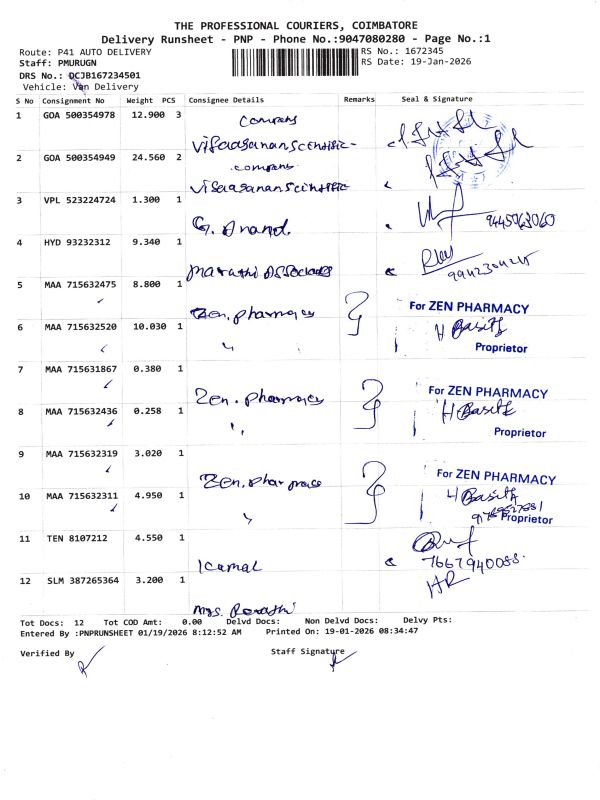 THE PROFESSIONAL COURIERS, COIMBATORE
Delivery Runsheet - PNP - Phone No.:9047080280 - Page No.:1
Route: P41 AUTO DELIVERY
RS No.: 1672345
Staff: PMURUGN
RS Date: 19-Jan-2026
DRS No.: QCJB167234501
Vehicle: Van Delivery
S No Consignment No Weight PCS Consignee Details Remarks Seal & Signature
1 GOA 500354978 12.900 3
2 GOA 500354949 24.560 2
3 VPL 523224724 1.300 1 G. Anand.
4 HYD 93232312 9.340 1
5 MAA 715632475 8.800 1 Zen. pharmacy For ZEN PHARMACY
6 MAA 715632520 10.030 1 " H Basith
Proprietor
7 MAA 715631867 0.380 1 Zen. pharmacy For ZEN PHARMACY
8 MAA 715632436 0.258 1 " H Basith
Proprietor
9 MAA 715632319 3.020 1 Zen. pharmacy For ZEN PHARMACY
10 MAA 715632311 4.950 1 " H Basith
Proprietor
11 TEN 8107212 4.550 1 7667940088.
12 SLM 387265364 3.200 1 HR
Mrs.
Tot Docs: 12 Tot COD Amt: 0.00 Delvd Docs: Non Delvd Docs: Delvy Pts:
Entered By :PNPRUNSHEET 01/19/2026 8:12:52 AM Printed On: 19-01-2026 08:34:47
Verified By Staff Signature